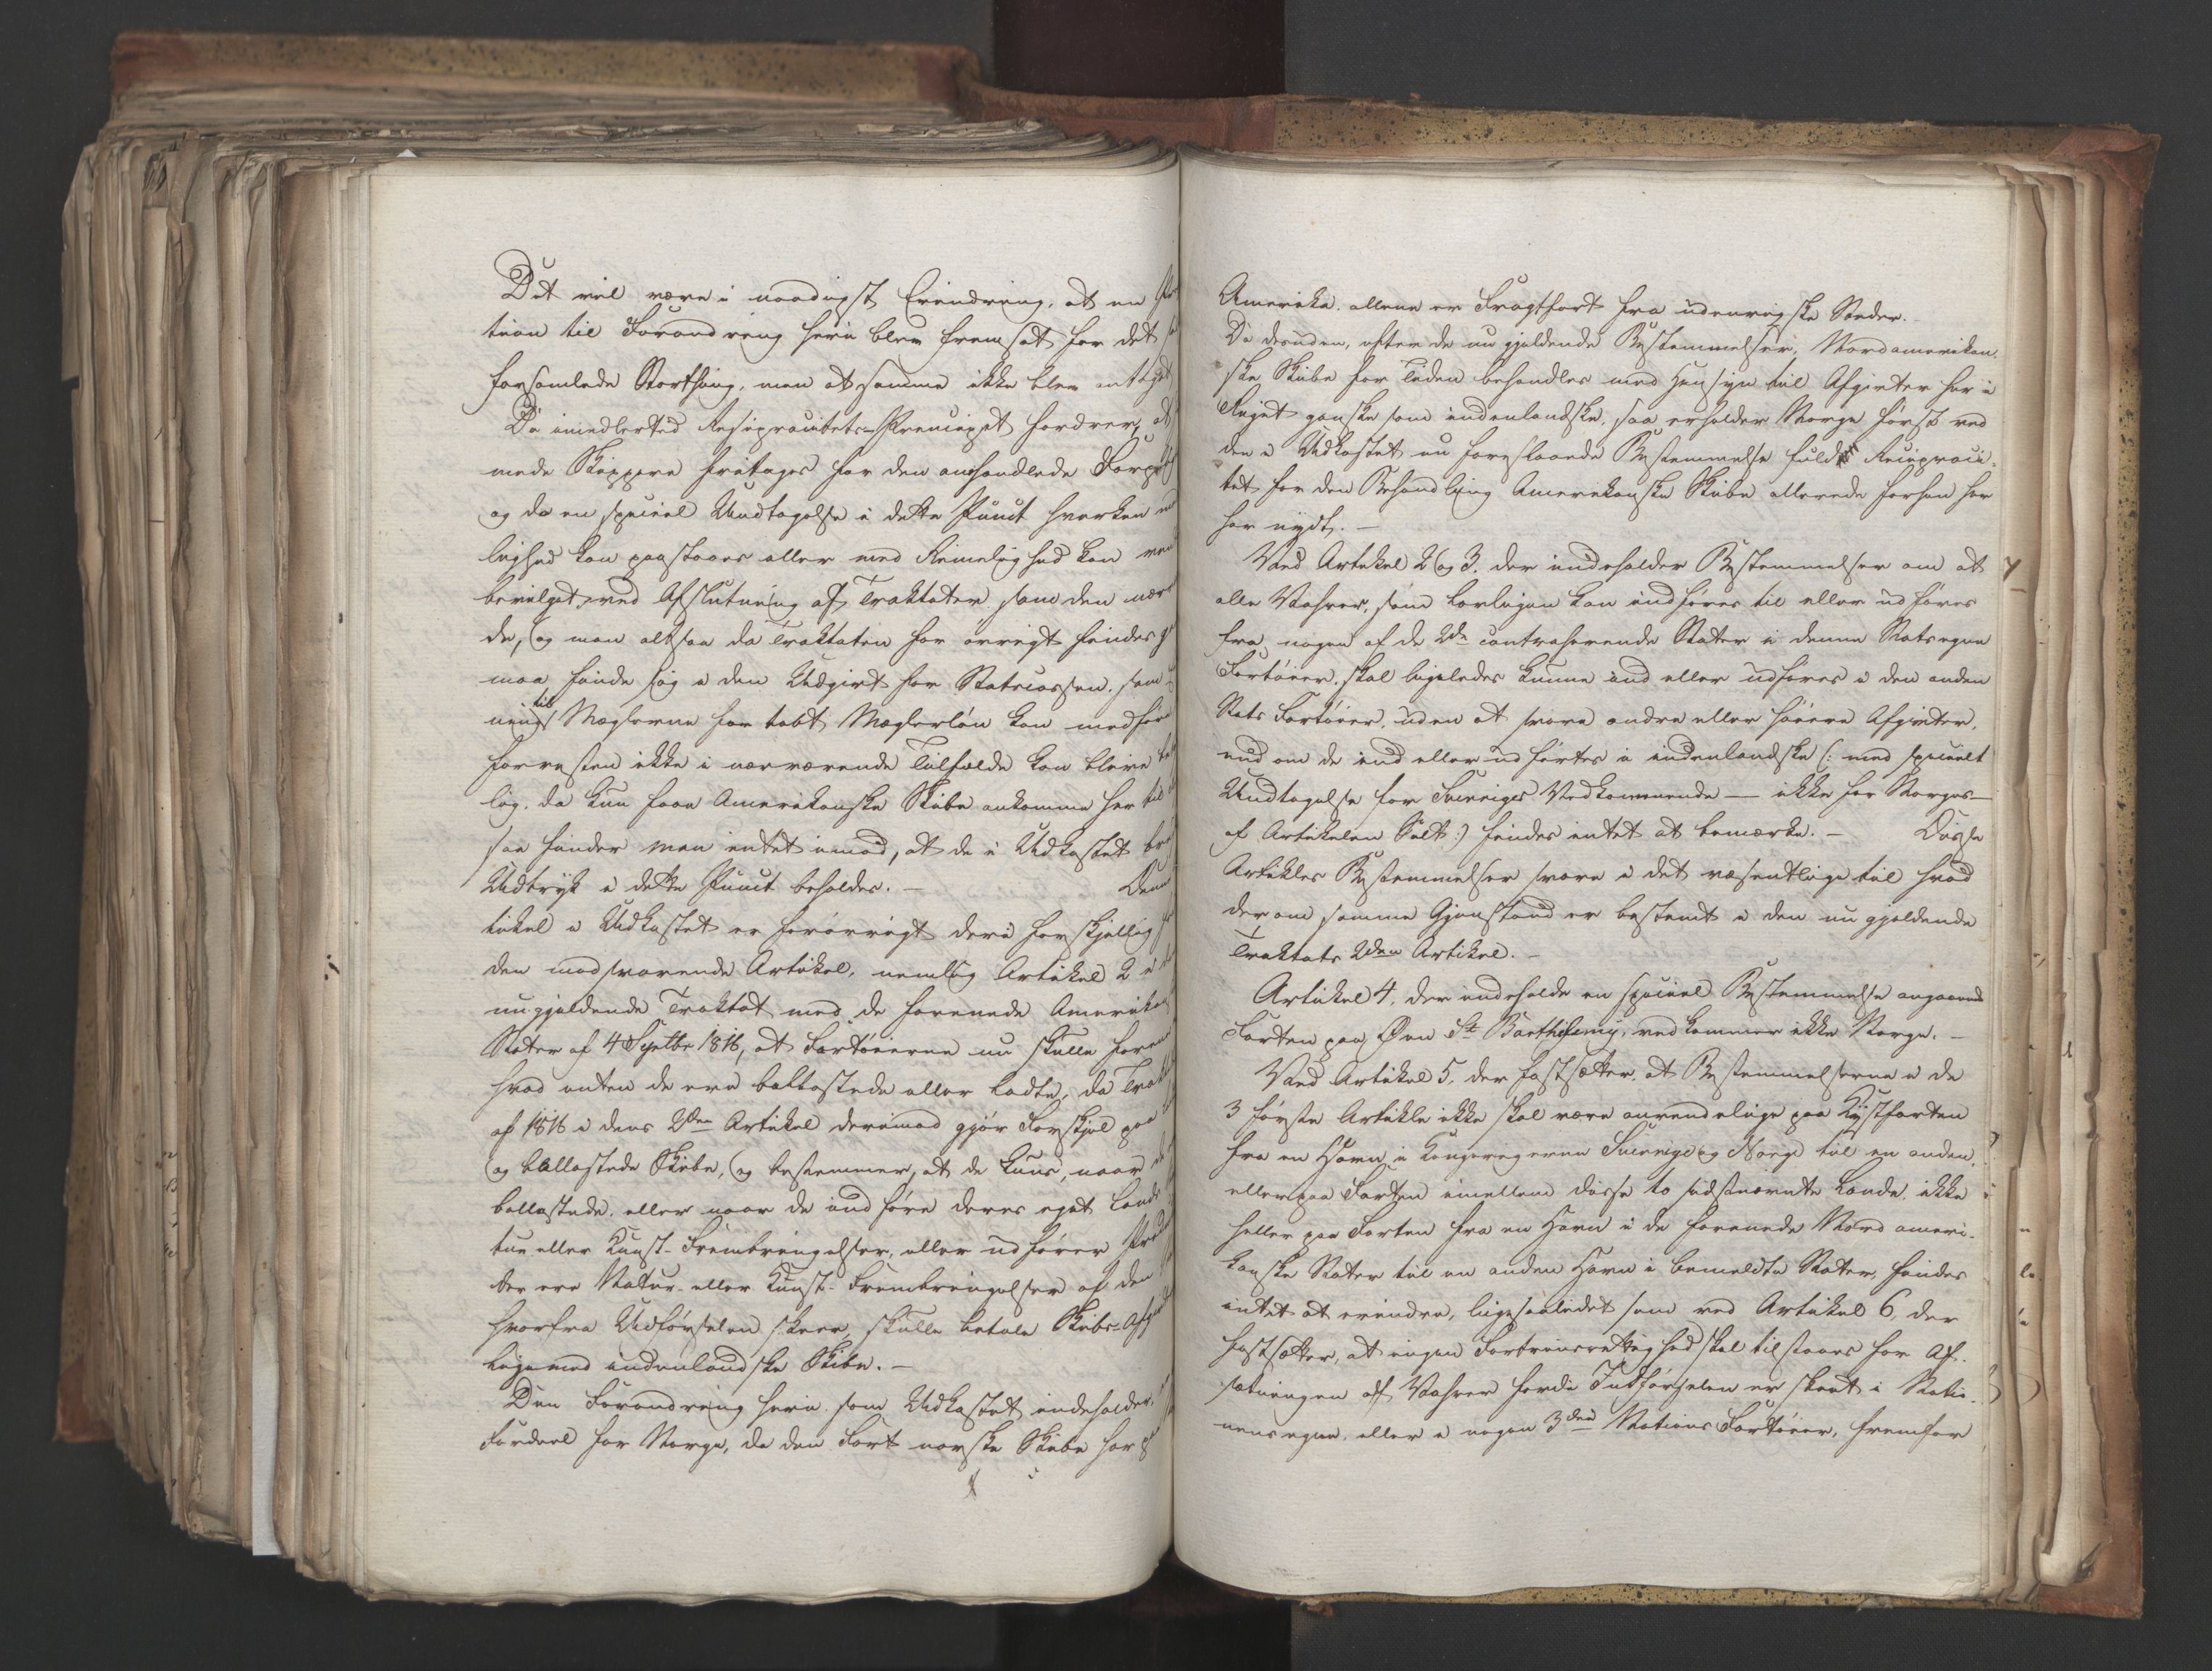 Det vil være i naadigst Erindring, at en
tion til Forandring heri blev fremsat for det
forsamlede Storthing, men at samme ikke blev antaget
Da imidlertid Reciprocitets-Principet fordrer, at
mede Skippere fritages for den omhandlede
og da en speciel Undtagelse i dette Punct hverken
lighed kan paastaaes eller med Rimelighed kan
bevilget, ved Afslutning af Traktater som den nær
de, og man altsaa da Traktaten for øvrigt findes
maa finde sig i den Udgivt for Statscassen, som
ning til Mæglerne for tabt Mæglerløn kan medføre
forresten ikke i nærværende Tilfælde kan blive
lig, da kun faae Amerikanske Skibe ankomme her til
saa finder man intet imod, at de i Udkastet
Udtryk i dette Punct beholdes. –
tikel i Udkastet er forøvrigt deri forskjellig
den modsvarende Artikel, nemlig Artikel 2 i
nugjeldende Traktat med de forenede Amerikan
Stater af 4 Septbr 1816, at Fartøierne nu skulle
hvad enten de ere baltastede eller ladte, da
af 1816 i dens 2den Artikel derimod gjør Forskjel paa
og ballastede Skibe, og bestemmer, at de kuns, naar
ballastede, eller naar de indføre deres eget Lands
tur eller Kunst-Frembringelser, eller udfører
der ere Natur- eller Kunst-Frembringelser af den
hvorfra Udførselen skeer, skulle betale Skibs-Afgivt
lige med indenlandske Skibe. –
Den Forandring heri som Udkastet indeholder,
Fordeel for Norge, da den Fart norske Skibe har
Amerika, allene er Fragtfart fra udenrigske Steder. –
Da desuden, efter de nu gjeldende Bestemmelser, Nordamerikan-
ske Skibe for Tiden behandles med Hensyn til Afgivter her i
Riget ganske som indenlandske, saa erholder Norge først ved
den i Udkastet nu foreslaaede Bestemmelse fuld Reciproci-
tet for den Behandling Amerikanske Skibe allerede forhen her
har nydt. –
Ved Artikel 2 og 3, der indeholder Bestemmelser om at
alle Vahrer, som lovligen kan indføres til eller udføres
fra nogen af de 2de contraherende Stater i denne Stats egne
Fartøier, skal ligeledes kunne ind eller udføres i den anden
Stats Fartøier, uden at svare andre eller høiere Afgivter,
end om de ind eller udførtes i indenlandske (: med speciell
Undtagelse for Sverriges Vedkommende – ikke for Norges –
af Artikelen Salt :) findes intet at bemærke. – Disse
Artikles Bestemmelser svare i det væsentlige til hvad
der om samme Gjenstand er bestemt i den nu gjeldende
Traktats 2den Artikel. –
Artikel 4, der indeholde en speciel Bestemmelse angaaende
Farten paa Øen St Barthélemy, vedkommer ikke Norge. –
Ved Artikel 5, der fastsætter, at Bestemmelserne i de
3 første Artikle ikke skal være anvendelige paa Kystfarten
fra en Havn i Kongerigerne Sverrige og Norge til en anden,
eller paa Farten imellem disse to sidstnævnte Lande, ikke
heller paa Farten fra en Havn i de forenede Nord ameri-
kanske Stater til en anden Havn i bemeldte Stater, findes
intet at erindre, ligesaalidet som ved Artikel 6, der
fastsætter, at ingen Fortrinsrettighed skal tilstaaes for Af-
sætningen af Vahrer fordi Indførselen er skeet i Natio-
nens egne, eller i nogen 3die Nations Fartøier, fremfor